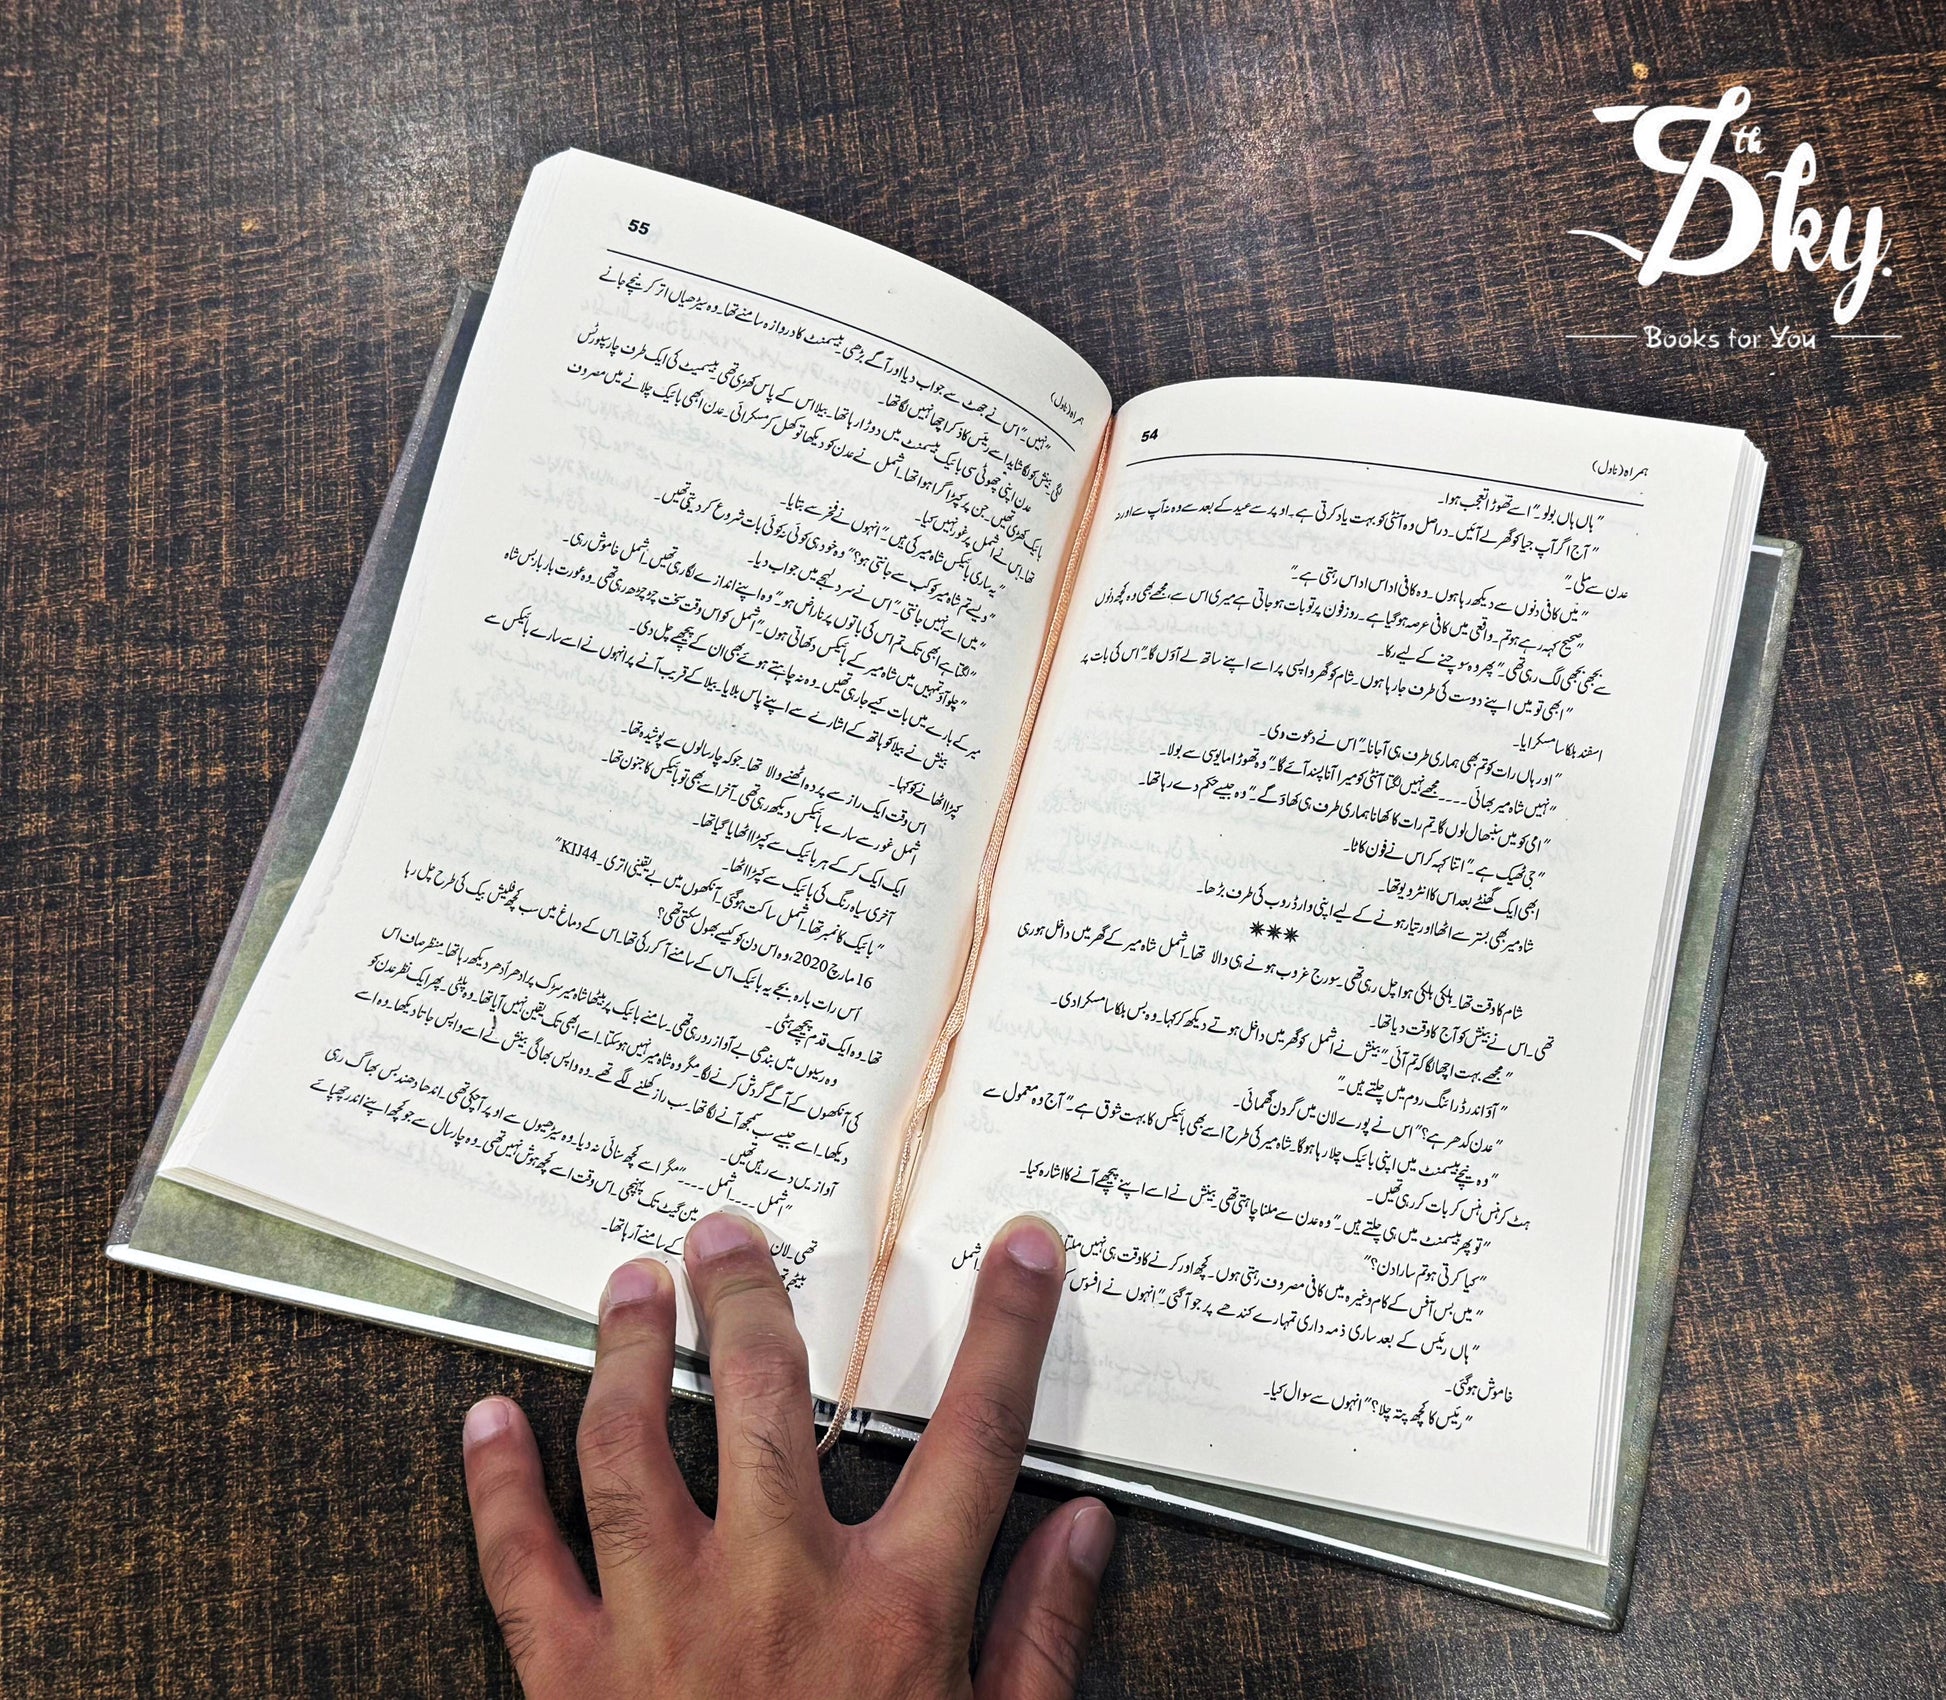 5th Sky.
Books for You
54
ہمراہ (ناول)
”ہاں ہاں بولو۔“ اسے تھوڑا تعجب ہوا۔
”آج اگر آپ جیا کو گھر لے آئیں۔ دراصل وہ آنٹی کو بہت یاد کرتی ہے۔ اوپر سے عید کے بعد سے وہ نہ آپ سے اور نہ
عدن سے ملی۔“
”میں کافی دنوں سے دیکھ رہا ہوں۔ وہ کافی اداس اداس رہتی ہے۔“
”صحیح کہہ رہے ہو تم۔ واقعی میں کافی عرصہ ہو گیا ہے۔ روز فون پر تو بات ہو جاتی ہے میری اس سے، مجھے بھی وہ کچھ دنوں
سے بجھی بجھی لگ رہی تھی۔“ پھر وہ سوچنے کے لیے رکا۔
”ابھی تو میں اپنے دوست کی طرف جا رہا ہوں۔ شام کو گھر واپسی پر اسے اپنے ساتھ لے آؤں گا۔“ اس کی بات پر
اسفند ہلکا سا مسکرایا۔
”اور ہاں رات کو تم بھی ہماری طرف ہی آ جانا۔“ اس نے دعوت دی۔
”نہیں شاہ میر بھائی۔۔۔۔ مجھے نہیں لگتا آنٹی کو میرا آنا پسند آئے گا۔“ وہ تھوڑا مایوسی سے بولا۔
”امی کو میں سنبھال لوں گا۔ تم رات کا کھانا ہماری طرف ہی کھاؤ گے۔“ وہ جیسے حکم دے رہا تھا۔
”جی ٹھیک ہے۔“ اتنا کہہ کر اس نے فون کاٹا۔
ابھی ایک گھنٹے بعد اس کا انٹرویو تھا۔
شاہ میر بھی بستر سے اٹھا اور تیار ہونے کے لیے اپنی وارڈروب کی طرف بڑھا۔
***
شام کا وقت تھا۔ ہلکی ہلکی ہوا چل رہی تھی۔ سورج غروب ہونے ہی والا تھا۔ اشمل شاہ میر کے گھر میں داخل ہو رہی
تھی۔ اس نے بینش کو آج کا وقت دیا تھا۔
”مجھے بہت اچھا لگا کہ تم آئی۔“ بینش نے اشمل کو گھر میں داخل ہوتے دیکھ کر کہا۔ وہ بس ہلکا سا مسکرا دی۔
”آؤ اندر ڈرائنگ روم میں چلتے ہیں۔“
”عدن کدھر ہے؟“ اس نے پورے لان میں گردن گھمائی۔
”وہ نیچے بیسمنٹ میں اپنی بائیک چلا رہا ہو گا۔ شاہ میر کی طرح اسے بھی بائیکس کا بہت شوق ہے۔“ آج وہ معمول سے
ہٹ کر ہنس ہنس کر بات کر رہی تھیں۔
”تو پھر بیسمنٹ میں ہی چلتے ہیں۔“ وہ عدن سے ملنا چاہتی تھی۔ بینش نے اسے اپنے پیچھے آنے کا اشارہ کیا۔
”کیا کرتی ہو تم سارا دن؟“
”میں بس آفس کے کام وغیرہ میں کافی مصروف رہتی ہوں۔ کچھ اور کرنے کا وقت ہی نہیں ملتا
”ہاں رئیس کے بعد ساری ذمہ داری تمہارے کندھے پر جو آ گئی۔“ انہوں نے افسوس اشمل
خاموش ہو گئی۔
”رئیس کا کچھ پتہ چلا؟“ انہوں سے سوال کیا۔
55
ہمراہ (ناول)
”نہیں۔“ اس نے جھٹ سے جواب دیا اور آگے بڑھی۔ بیسمنٹ کا دروازہ سامنے تھا۔ وہ سیڑھیاں اتر کر نیچے جانے
لگی۔ بینش کو لگا شاید اسے رئیس کا ذکر اچھا نہیں لگا تھا۔
عدن اپنی چھوٹی سی بائیک بیسمنٹ میں دوڑا رہا تھا۔ بیلا اس کے پاس کھڑی تھی۔ بیسمیٹ کی ایک طرف چار سپورٹس
بائیک کھڑی تھیں۔ جن پر کپڑا گرا ہوا تھا۔ اشمل نے عدن کو دیکھا تو کھل کر مسکرائی۔ عدن ابھی بائیک چلانے میں مصروف
تھا۔ اس نے اشمل پر غور نہیں کیا۔
”یہ ساری بائیکس شاہ میر کی ہیں۔“ انہوں نے فخر سے بتایا۔
”ویسے تم شاہ میر کو کب سے جانتی ہو؟“ وہ خود ہی کوئی نہ کوئی بات شروع کر دیتی تھیں۔
”میں اسے نہیں جانتی۔“ اس نے سرد لہجے میں جواب دیا۔
”لگتا ہے ابھی تک تم اس کی باتوں پر ناراض ہو۔“ وہ اپنے اندازے لگا رہی تھیں۔ اشمل خاموش رہی۔
”چلو آؤ تمہیں میں شاہ میر کے بائیکس دکھاتی ہوں۔“ اشمل کو اس وقت سخت چڑ چڑھ رہی تھی۔ وہ عورت بار بار بس شاہ
میر کے بارے میں بات کیے جا رہی تھیں۔ وہ نہ چاہتے ہوئے بھی ان کے پیچھے چل دی۔
بینش نے بیلا کو ہاتھ کے اشارے سے اپنے پاس بلایا۔ بیلا کے قریب آنے پر انہوں نے اسے سارے بائیکس سے
کپڑا اٹھانے کو کہا۔
اس وقت ایک راز سے پردہ اٹھنے والا تھا۔ جو کہ چار سالوں سے پوشیدہ تھا۔
اشمل غور سے سارے بائیکس دیکھ رہی تھی۔ آخر اسے بھی تو بائیکس کا جنون تھا۔
ایک ایک کر کے ہر بائیک سے کپڑا اٹھایا گیا تھا۔
آخری سیاہ رنگ کی بائیک سے کپڑا اٹھا۔
”بائیک کا نمبر تھا۔ اشمل ساکت ہو گئی۔ آنکھوں میں بے یقینی اتری۔ KIJ44“
16 مارچ 2020، وہ اس دن کو کیسے بھول سکتی تھی؟
اُس رات بارہ بجے یہ بائیک اس کے سامنے آ کر رکی تھا۔ اس کے دماغ میں سب کچھ فلیش بیک کی طرح چل رہا
تھا۔ وہ ایک قدم پیچھے ہٹی۔
وہ رسیوں میں بندھی بے آواز رو رہی تھی۔ سامنے بائیک پر بیٹھا شاہ میر سڑک پر ادھر اُدھر دیکھ رہا تھا۔ منظر صاف اس
کی آنکھوں کے آگے گردش کرنے لگا۔ مگر وہ شاہ میر نہیں ہو سکتا۔ اسے ابھی تک یقین نہیں آیا تھا۔ وہ پلٹی۔ پھر ایک نظر عدن کو
دیکھا۔ اسے جیسے سب سمجھ آنے لگا تھا۔ سب راز کھلنے لگے تھے۔ وہ واپس بھاگی۔ بینش نے اسے واپس جاتا دیکھا۔ وہ اسے
آوازیں دے رہیں تھیں۔
”اشمل۔۔۔۔ اشمل۔۔۔۔“ مگر اسے کچھ سنائی نہ دیا۔ وہ سیڑھیوں سے اوپر آ چکی تھی۔ اندھا دھند بس بھاگ رہی
تھی۔ لان مین گیٹ تک پہنچی۔ اس وقت اسے کچھ ہوش نہیں تھی۔ وہ چار سال سے جو کچھ اپنے اندر چھپائے
بیٹھے کے سامنے آ رہا تھا۔